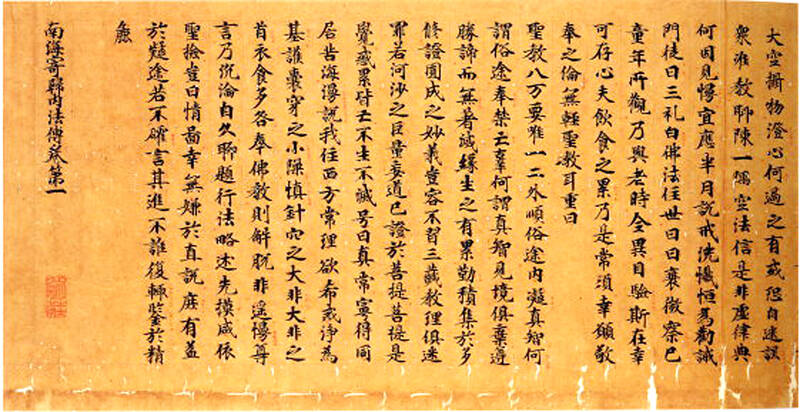 大空物澄心何過之有或恐自迷誤
衆准教聊陳一隅空法信是非虛律典
何因見慢宜應半月說戒洗懺恒為勸誡
門徒日三礼白佛法住世日日衰微察己
童年所觀乃與老時全異目驗斯在幸
可存心夫飲食之累乃是常須幸願敬
奉之倫無輕聖教耳重曰
聖教八万要唯一二外順俗途內凝真智何
謂俗途奉禁亡辜何謂真智見境俱棄遵
勝諦而無著滅緣生之有累勤積集於多
修證圓成之妙義豈容不習三藏教理俱迷
罪若河沙之巨量妄道已證於菩提菩提是
覺惑累皆亡不生不滅号曰真常寧得同
居苦海漫說我住西方常理欲希戒淨為
基護囊穿之小隙慎針穴之大非大非之
首衣食多咎奉佛教則解脫非遥慢尊
言乃沉淪自久聊題行法略述先摸咸依
聖撿豈曰情啚幸無嫌於直說庶有益
於疑途若不確言其進不誰復輒鑒於精
麁
南海寄歸內法傳卷第一